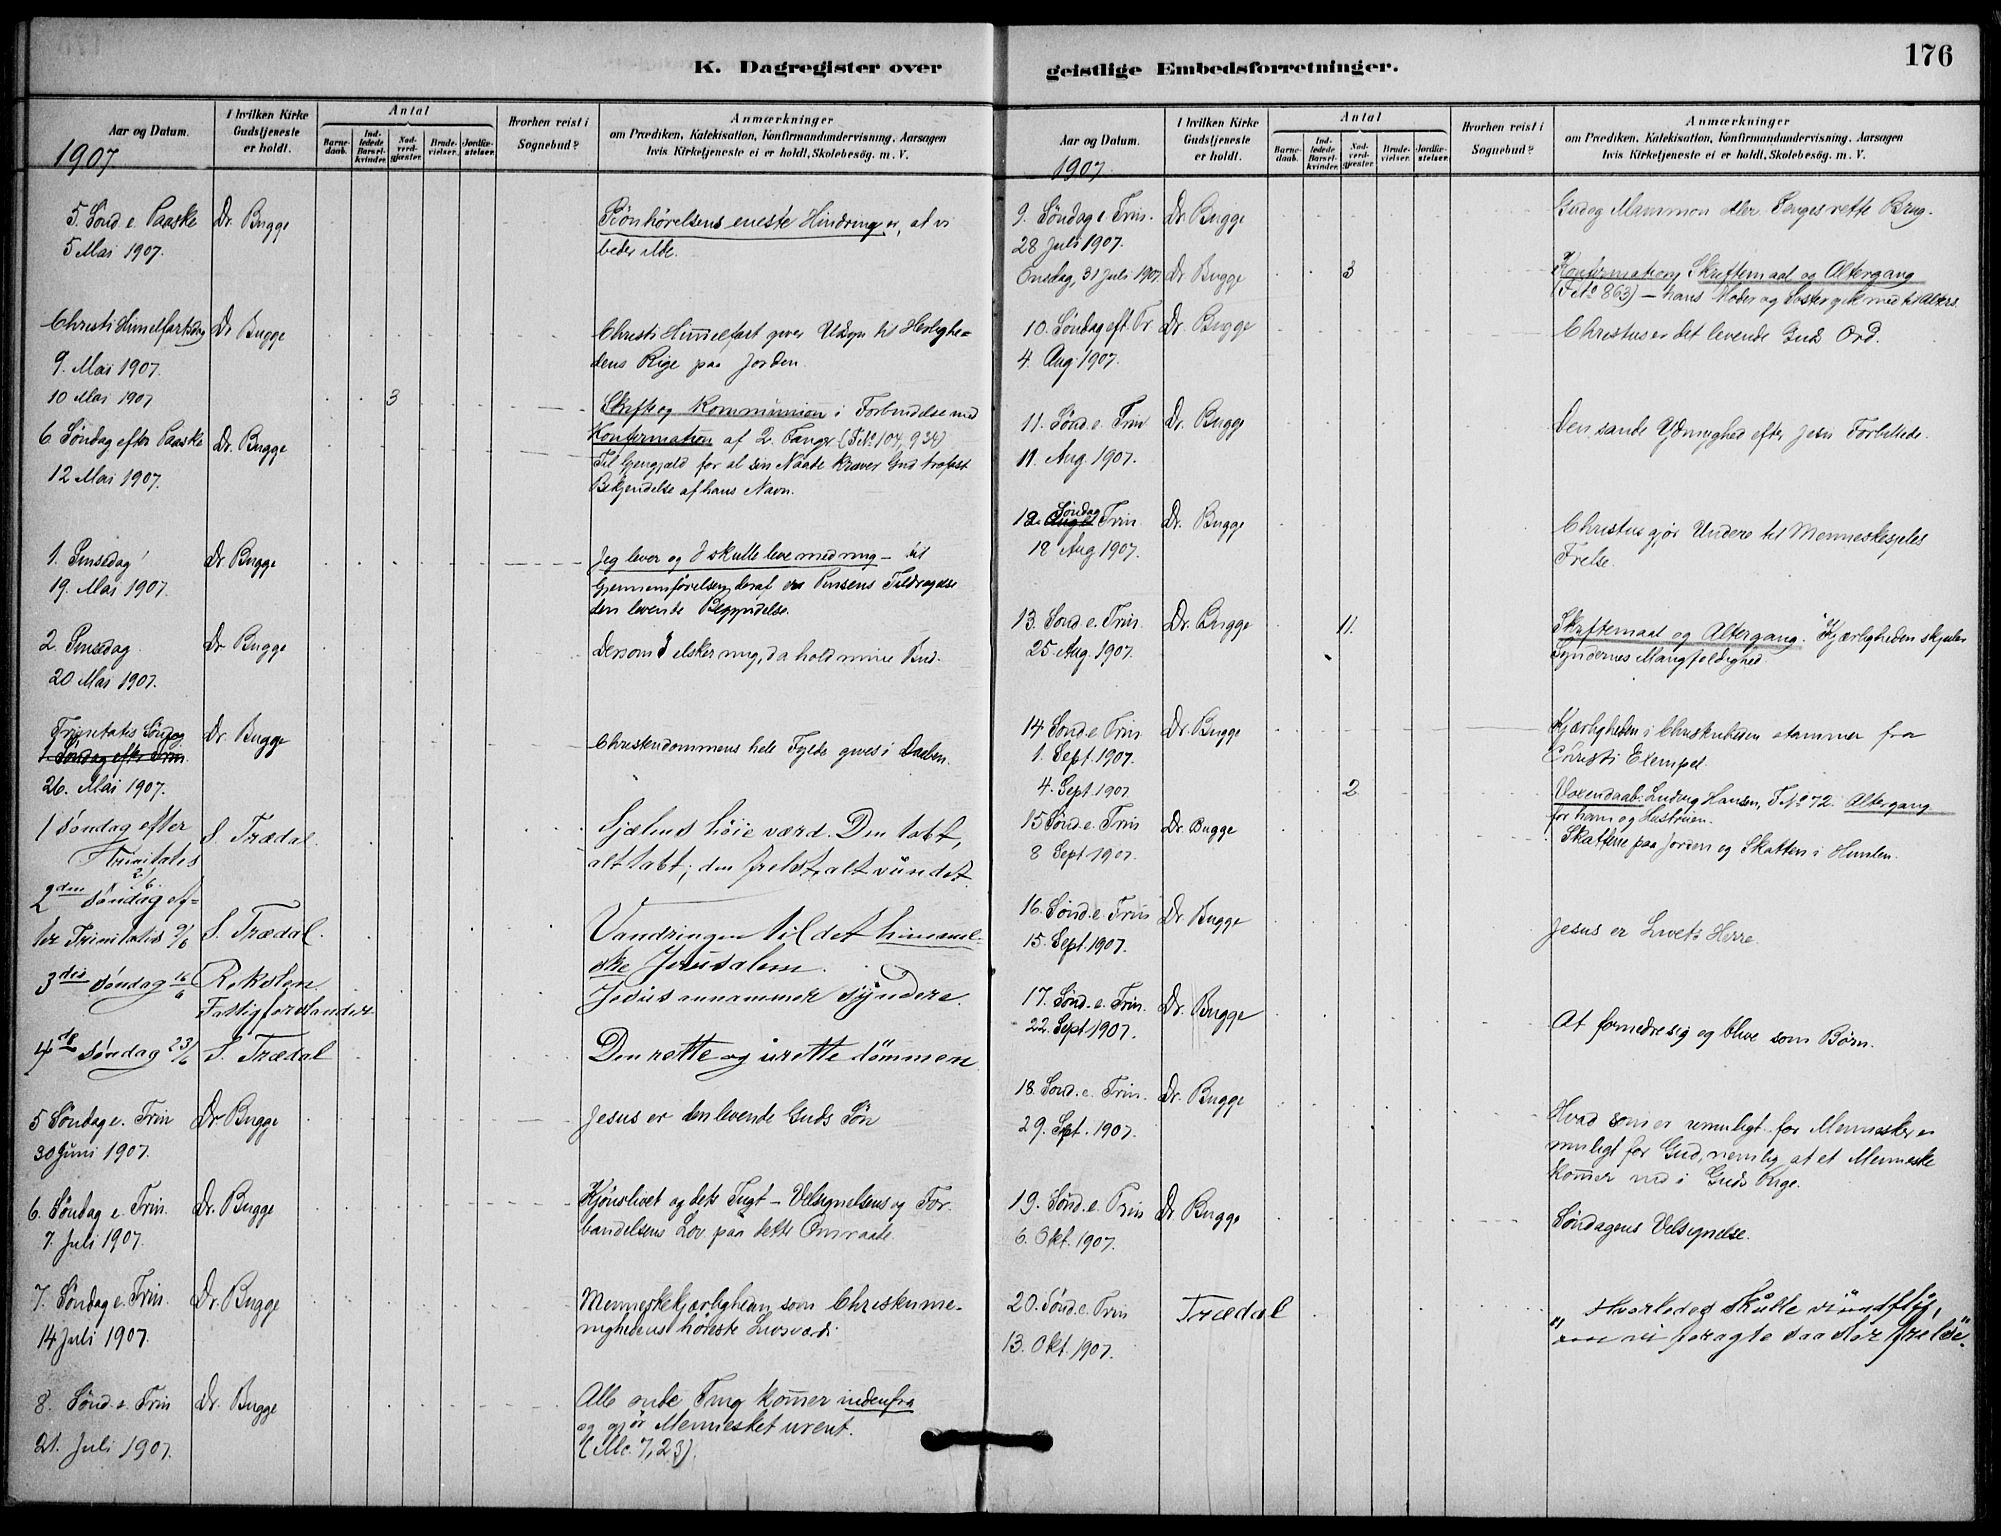 176
K. Dagregister over
geistlige Embedsforretninger.
Aar og Datum.
I hvilken Kirke Gudstjeneste er holdt.
Antal
Barnedaab.
Indledede Barselkvinder.
Nadverdgjæster.
Brudevielser.
Jordfæstelser.
Hvorhen reist i Sognebud?
Anmærkninger
om Prædiken, Katekisation, Konfirmandundervisning, Aarsagen
hvis Kirketjeneste ei er holdt, Skolebesøg. m. V.
1907
5. Sønd e. Paaske Dr. Bugge Bønhørelsens eneste Hindring er, at vi
5 Mai 1907. beder ilde.
Christi Himelfartsdag Dr Bugge Christi Himelfart giver Udsyn til Herlighe-
9. Mai 1907. dens Rige paa Jorden.
10 Mai 1907 3 Skrifte og Kommunion i Forbindelse med
Konfirmation af 2. Fanger (F. No 104, 934)
6 Søndag efter Paaske Dr. Bugge Til Gjengjæld for al sin Naade kræver Gud trofast
12 Mai 1907. Bekjendelse af hans Navn.
1. Pinsedag Dr Bugge Jeg lever og I skulle leve med mig –
19. Mai 1907. Gjennemførelsen deraf er Pinsens Tildragelse
den levende Begyndelse.
2 Pinsedag Dr Bugge Dersom I elsker mig, da hold mine Bud.
20 Mai 1907.
Trinitatis Søndag Dr. Bugge Christendommens hele Fylde gives i Daaben.
1 Søndag efter Trin.
26. Mai 1907.
1 Søndag efter S. Trædal. Sjælens høie værd. Den tabt,
Trinitatis 2/6. alt tabt; den frelst, alt vundet.
2den Søndag ef-
ter Trinitatis 9/6 S. Trædal. Vandringen til det himmel-
ske Jerusalem.
3die Søndag 16/6 Roksten Jesus annammer syndere.
Fattigforstander
4de Søndag 23/6 S. Trædal Den rette og urette dømmen
5 Søndag e. Trin Dr Bugge Jesus er den levende Guds Søn
30 Juni 1907.
6. Søndag e. Trin. Dr. Bugge Kjønslivet og dets Tugt – Velsignelsens og For-
7. Juli 1907. bandelsens Lov paa dette Omraade.
7. Søndag e. Trin. Dr. Bugge Menneskekjærligheden som Christenme-
14 Juli 1907. nighedens høieste Livsværdi.
8. Sønd. e. Trin Dr. Bugge Alle onde Ting komer indenfra
21. Juli 1907. og gjør Mennesket urent.
(Mc. 7, 23).
Aar og Datum.
I hvilken Kirke Gudstjeneste er holdt.
Antal
Barnedaab.
Indledede Barselkvinder.
Nadverdgjæster.
Brudevielser.
Jordfæstelser.
Hvorhen reist i Sognebud?
Anmærkninger
om Prædiken, Katekisation, Konfirmandundervisning, Aarsagen
hvis Kirketjeneste ei er holdt, Skolebesøg. m. V.
1907.
9. Søndag e. Trin. Dr. Bugge Gud og Mammon eller Penges rette Brug.
28 Juli 1907.
Onsdag, 31 Juli 1907 Dr Bugge 3 Konfirmation, Skriftemaal og Altergang
(F. No 863) – hans Moder og Søster gik med til Alters.
10. Søndag eft. Tr Dr. Bugge Christus er det levende Guds Ord.
4. Aug. 1907.
11. Sønd. e. Trin Dr. Bugge Den sande Ydmyghed efter Jesu Forbillede.
11. Aug. 1907.
12. Søndag Trin Dr. Bugge Christus gjør Undere til Menneskesjeles
18 Aug 1907. Frelse.
13. Sønd. e. Trin. Dr. Bugge 11. Skriftemaal og Altergang. Kjærligheden skjuler
25. Aug. 1907. Syndernes Mangfoldighed.
14 Sond e. Trin Dr. Bugge Kjærligheden i Christenheden stammer fra
1. Sept. 1907. Christi Exempel.
4. Sept. 1907 2 Voxendaab: Ludvig Hansen, F No 72. Altergang
for ham og Hustruen.
15 Sønd. e. Trin Dr. Bugge Skattene paa Jorden og Skatten i Himlen.
8 Sept 1907.
16. Sønd. e. Trin Dr. Bugge Jesus er Livets Herre.
15. Sept 1907.
17. Sønd. e. Trin. Dr. Bugge At fornedre sig og blive som Børn.
22. Sept 1907.
18. Sond. e. Trin. Dr. Bugge Hvad som er umuligt for Mennesker er
29. Sept. 1907. muligt for Gud, nemlig at et Menneske
komer ind i Guds Rige.
19. Sønd. e. Trin Dr. Bugge Søndagens Velsignelse.
6. Okt. 1907.
20. Sønd. e. Trin Trædal "Hvorledes skulle vi undfly,
13. Okt. 1907. om vi foragte saa stor frelse".